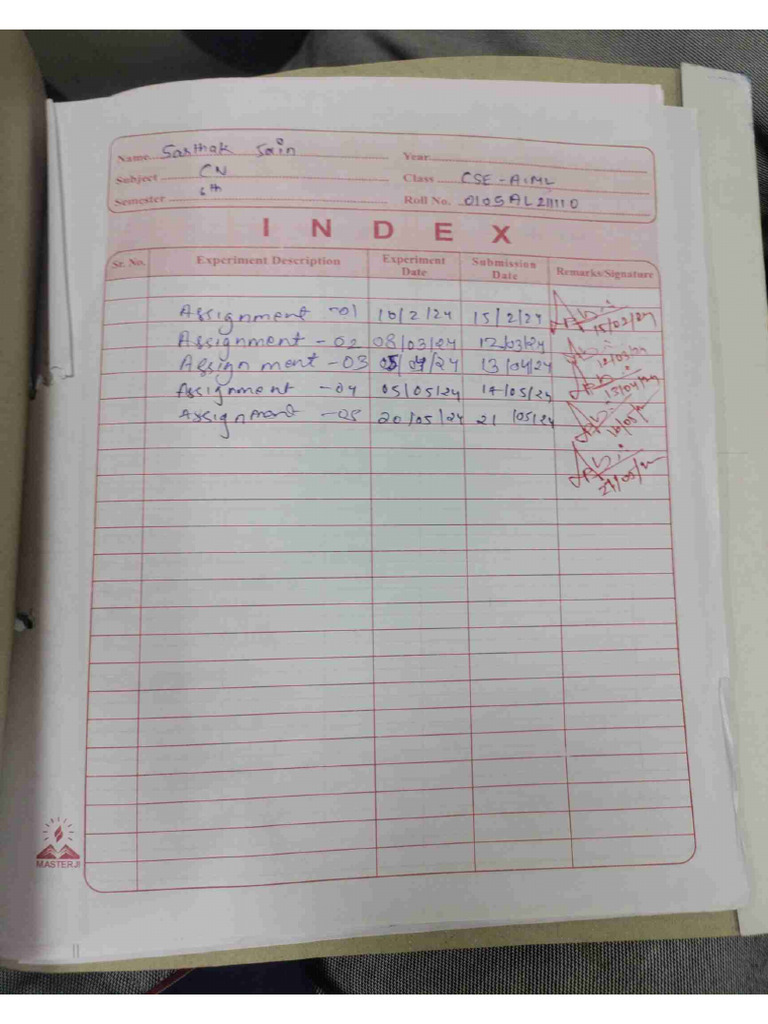 Name Sarthak Jain Year
Subject CN Class CSE-AIML
Semester 6th Roll No. 0105AL211110
INDEX
Sr. No. Experiment Description Experiment Date Submission Date Remarks/Signature
Assignment -01 10/2/24 15/2/24 15/02/24
Assignment -02 08/03/24 12/03/24 12/03/24
Assignment -03 05/04/24 13/04/24 13/04/24
Assignment -04 05/05/24 14/05/24
Assignment -05 20/05/24 21/05/24
MASTERJI